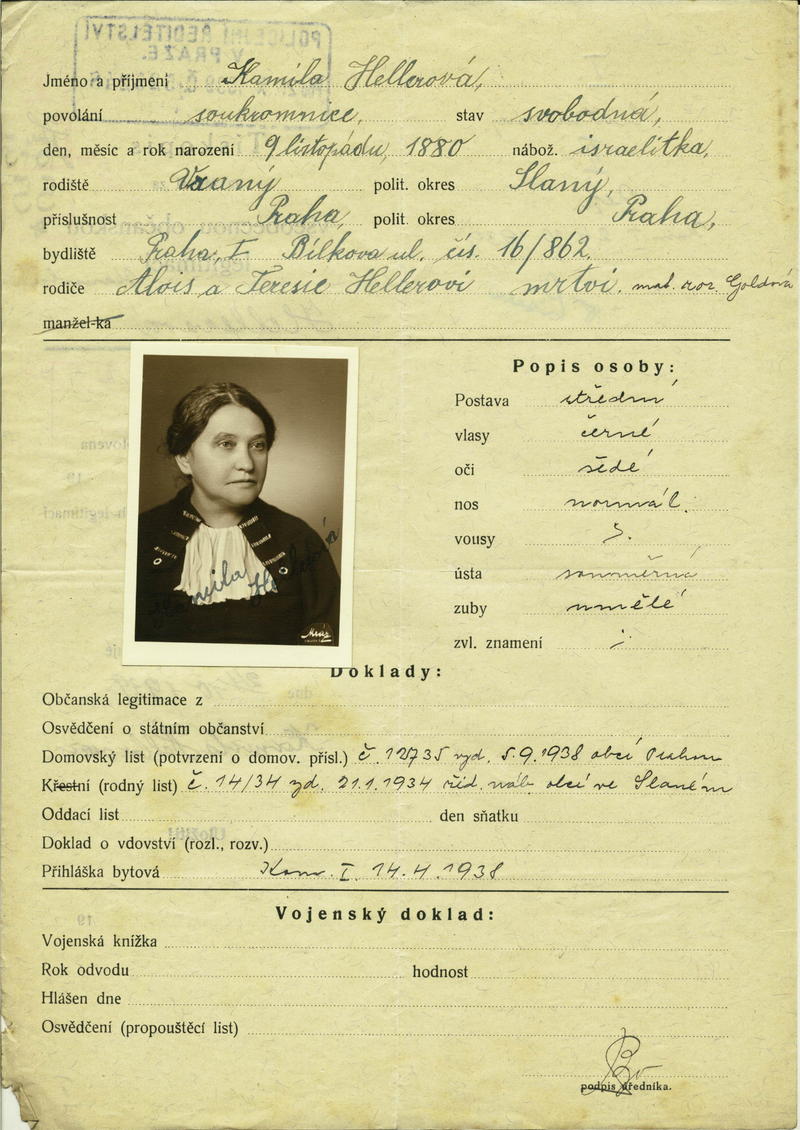 POLICEJNÍ ŘEDITELSTVÍ
V PRAZE.
Jméno a příjmení Kamila Hellerová,
povolání soukromnice, stav svobodná,
den, měsíc a rok narození 9 listopádu, 1880 nábož. israelitka,
rodiště Vraný polit. okres Slaný,
příslušnost Praha, polit. okres Praha,
bydliště Praha, I Bílkova ul. čís. 16/862.
rodiče Alois a Teresie Hellerovi mrtvi. mat. roz. Goldová
manžel-ka
Popis osoby:
Postava střední
vlasy černé
oči šedé
nos normál.
vousy
ústa souměrná
zuby umělé
zvl. znamení
Kamila Hellerová
Doklady:
Občanská legitimace z
Osvědčení o státním občanství
Domovský list (potvrzení o domov. přísl.) č. 12735 vyd. 5.9.1938 obcí Prahou
Křestní (rodný list) č. 14/34 vyd. 21.1.1934 žid. náb. obcí ve Slaném
Oddací list den sňatku
Doklad o vdovství (rozl., rozv.)
Přihláška bytová Kom. I. 14.4.1938
Vojenský doklad:
Vojenská knížka
Rok odvodu hodnost
Hlášen dne
Osvědčení (propouštěcí list)
podpis úředníka.